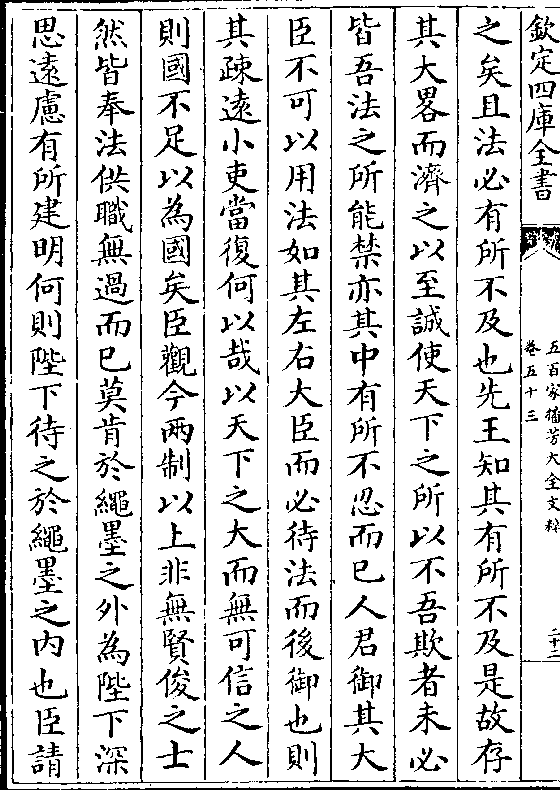 欽定四庫全書
五百家播芳大全文粹
卷五十三
二十二
之矣且法必有所不及也先王知其有所不及是故存
其大畧而濟之以至誠使天下之所以不吾欺者未必
皆吾法之所能禁亦其中有所不忍而已人君御其大
臣不可以用法如其左右大臣而必待法而後御也則
其疎逺小吏當復何以哉以天下之大而無可信之人
則國不足以為國矣臣觀今兩制以上非無賢俊之士
然皆奉法供職無過而已莫肯於繩墨之外為陛下深
思逺慮有所建明何則陛下待之於繩墨之内也臣請